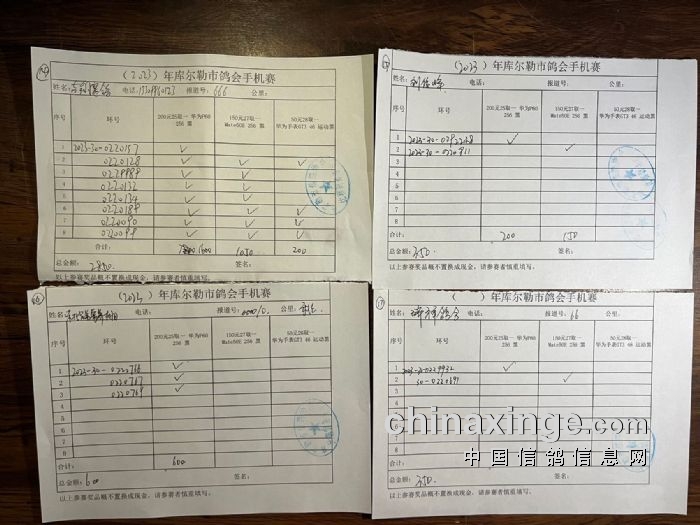 (2023)年库尔勒市鸽会手机赛
姓名: 电话: 报道号: 666 公里:
序号 环号 200元25取一 华为P60 256 票 150元27取一 Mate50E 256 票 50元28取一 华为手表GT3 46 运动黑
1 2023-30-0220157 ✓
2 0220128 ✓ ✓ ✓
3 ✓ ✓
4 0220132 ✓ ✓
5 0220134 ✓ ✓
6 0220189 ✓ ✓ ✓
7 0220090 ✓ ✓ ✓
8 0220099 ✓ ✓ ✓
合计: 1600 1050 200
总金额: 2850. 签名:
以上参赛奖品概不置换成现金, 请参赛者慎重填写.
(2023)年库尔勒市鸽会手机赛
姓名: 电话: 报道号: 公里:
序号 环号 200元25取一 华为P60 256 票 150元27取一 Mate50E 256 票 50元28取一 华为手表GT3 46 运动黑
1 ✓
2 2023-30-0220911 ✓
3
4
5
6
7
8
合计: 200 150
总金额: 350 签名:
以上参赛奖品概不置换成现金, 请参赛者慎重填写.
(2023)年库尔勒市鸽会手机赛
姓名: 电话: 报道号: 公里:
序号 环号 200元25取一 华为P60 256 票 150元27取一 Mate50E 256 票 50元28取一 华为手表GT3 46 运动黑
1 2023-30-0220766 ✓
2 0220767 ✓
3 0220769 ✓
4
5
6
7
8
合计: 600
总金额: 600 签名:
以上参赛奖品概不置换成现金, 请参赛者慎重填写.
( )年库尔勒市鸽会手机赛
姓名: 电话: 报道号: 66 公里:
序号 环号 200元25取一 华为P60 256 票 150元27取一 Mate50E 256 票 50元28取一 华为手表GT3 46 运动黑
1 ✓
2 30-0220691 ✓
3
4
5
6
7
8
合计:
总金额: 350 签名:
以上参赛奖品概不置换成现金, 请参赛者慎重填写.
chinaxinge.com
中国信鸽信息网